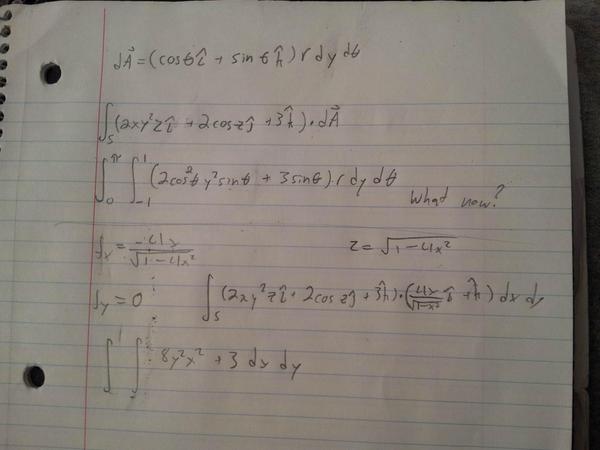 dA⃗ = (cosθ î + sinθ k̂) r dy dθ
∫_S (2xy²z î + 2cosz ĵ + 3k̂) • dA⃗
∫_0^π ∫_{-1}^1 (2cos²θ y² sinθ + 3 sinθ) • r dy dθ
What now?
f_x = -4x/√(1-4x²)
z = √(1-4x²)
f_y = 0
∫_S (2xy²z î + 2cos z ĵ + 3k̂) • (4x/√(1-x²) î + k̂) dx dy
∫^1 ∫ 8y²x² + 3 dx dy